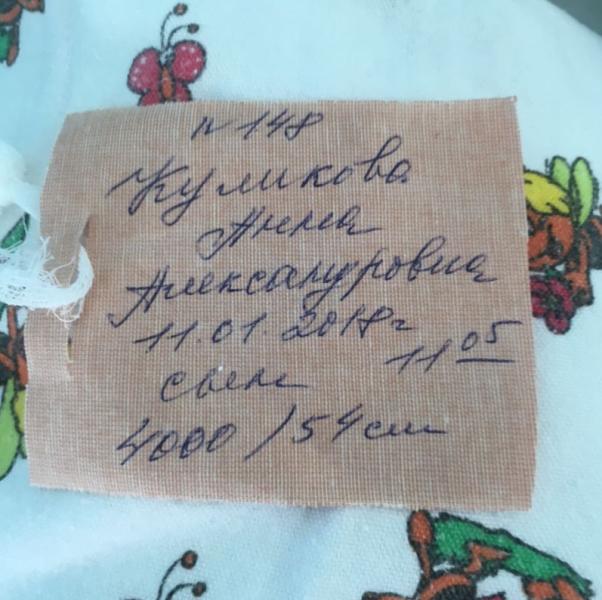 N 148
Куликова
Анна
Александровна
11.01.2018г
11 05
сын
4000 / 54см